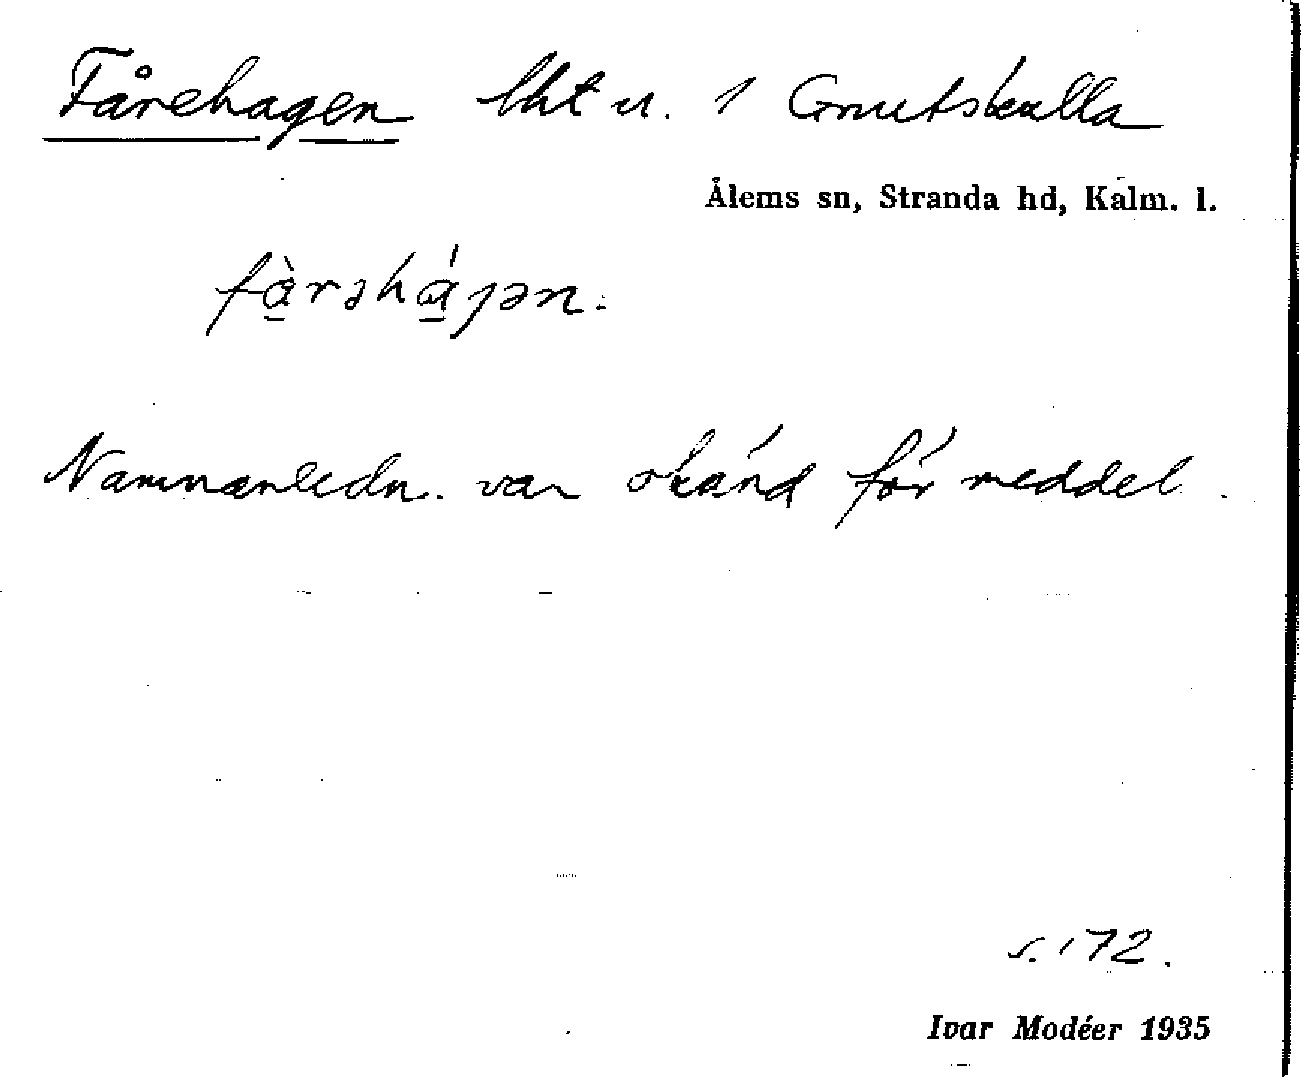 Fårehagen lht u. 1 Gnutskulla
Ålems sn, Stranda hd, Kalm. l.
fὰ̱rəhά̱jən.
Namnanledn. var okänd för meddel.
s. 172.
Ivar Modéer 1935